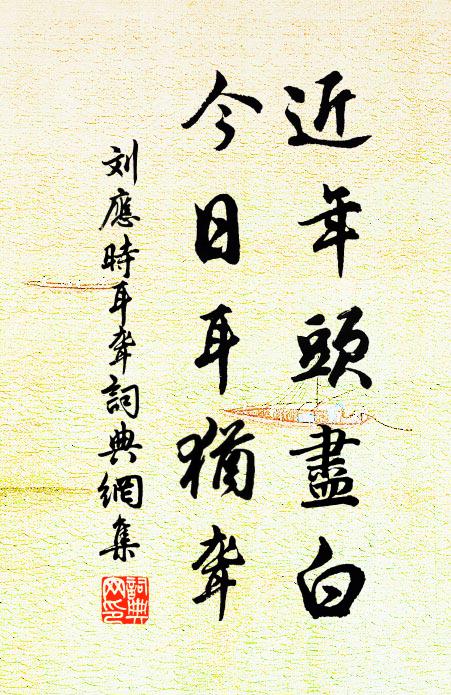 近年頭盡白
今日耳猶聋
刘應時耳聋詞典網集
詞典网印